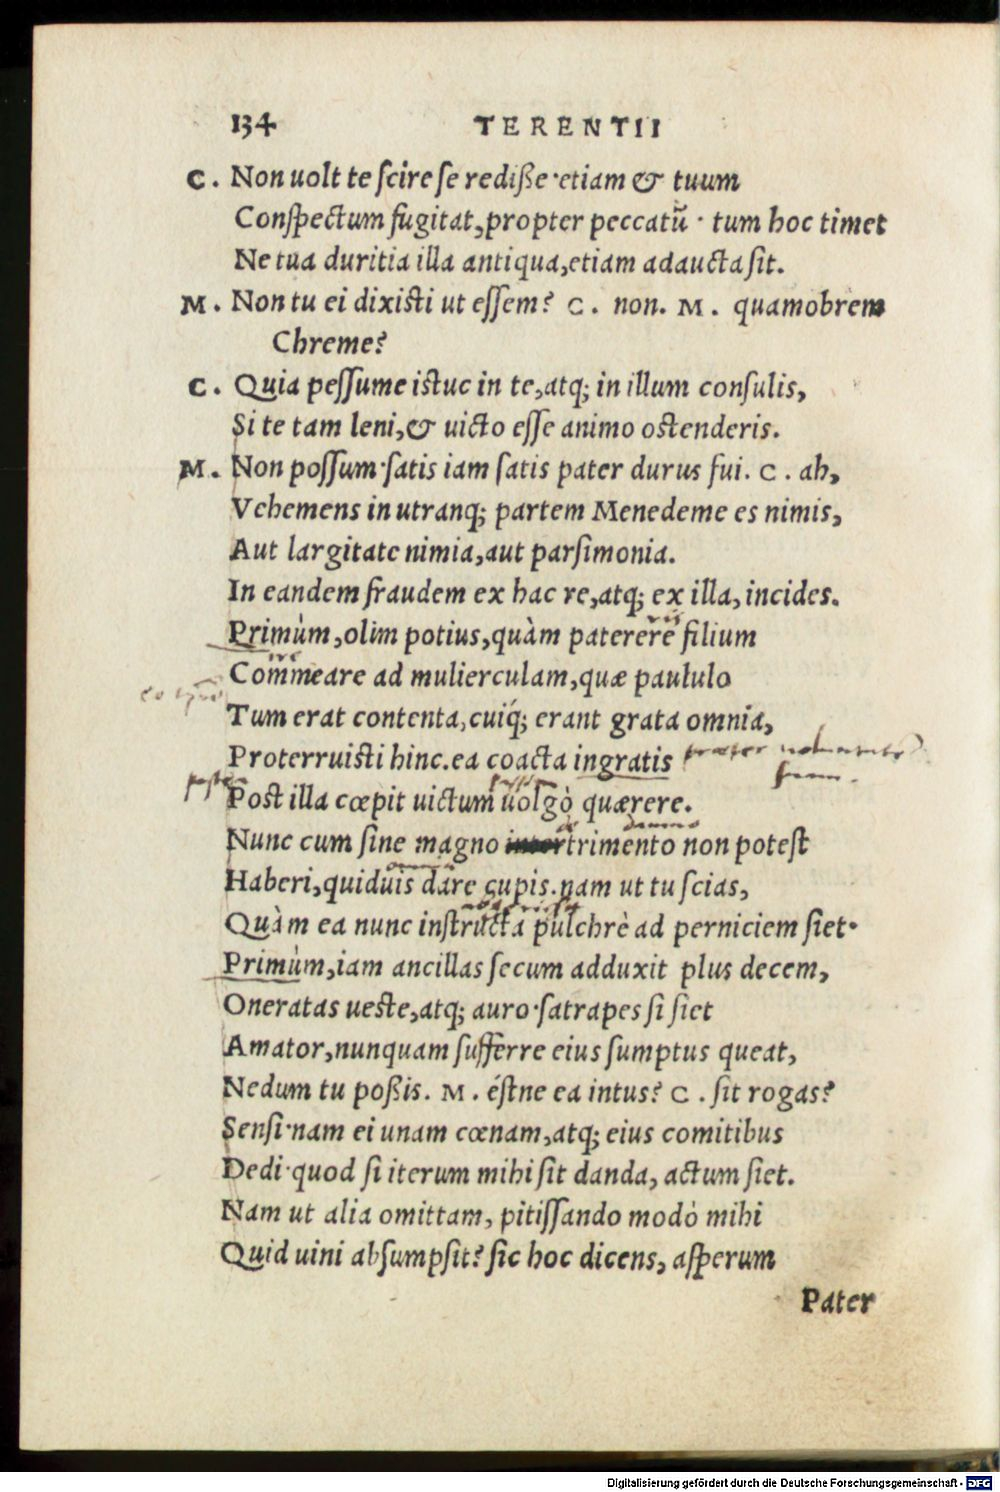 134 TERENTII
C. Non uolt te scire se rediße·etiam & tuum
Conspectum fugitat, propter peccatũ · tum hoc timet
Ne tua duritia illa antiqua, etiam adaucta sit.
M. Non tu ei dixisti ut essem? C. non. M. quamobrem
Chreme?
C. Quia pessume istuc in te, atq; in illum consulis,
Si te tam leni, & uicto esse animo ostenderis.
M. Non possum·satis iam satis pater durus fui. C. ah,
Vehemens in utranq; partem Menedeme es nimis,
Aut largitate nimia, aut parsimonia.
In eandem fraudem ex hac re, atq; ex illa, incides.
Primùm, olim potius, quàm paterere filium
Commeare ad mulierculam, quæ paululo
Tum erat contenta, cuiq́; erant grata omnia,
Proterruisti hinc. ea coacta ingratis
Post illa cœpit uictum uolgò quærere.
Nunc cum sine magno trimento non potest
damno
Haberi, quiduis dare cupis. nam ut tu scias,
Quàm ea nunc instructa pulchrè ad perniciem siet·
Primùm, iam ancillas secum adduxit plus decem,
Oneratas ueste, atq; auro·satrapes si siet
Amator, nunquam sufferre eius sumptus queat,
Nedum tu poßis. M. éstne ea intus? C. sit rogas?
Sensi·nam ei unam cœnam, atq; eius comitibus
Dedi·quod si iterum mihi sit danda, actum siet.
Nam ut alia omittam, pitissando modò mihi
Quid uini absumpsit? sic hoc dicens, asperum
Pater
Digitalisierung gefördert durch die Deutsche Forschungsgemeinschaft - DFG